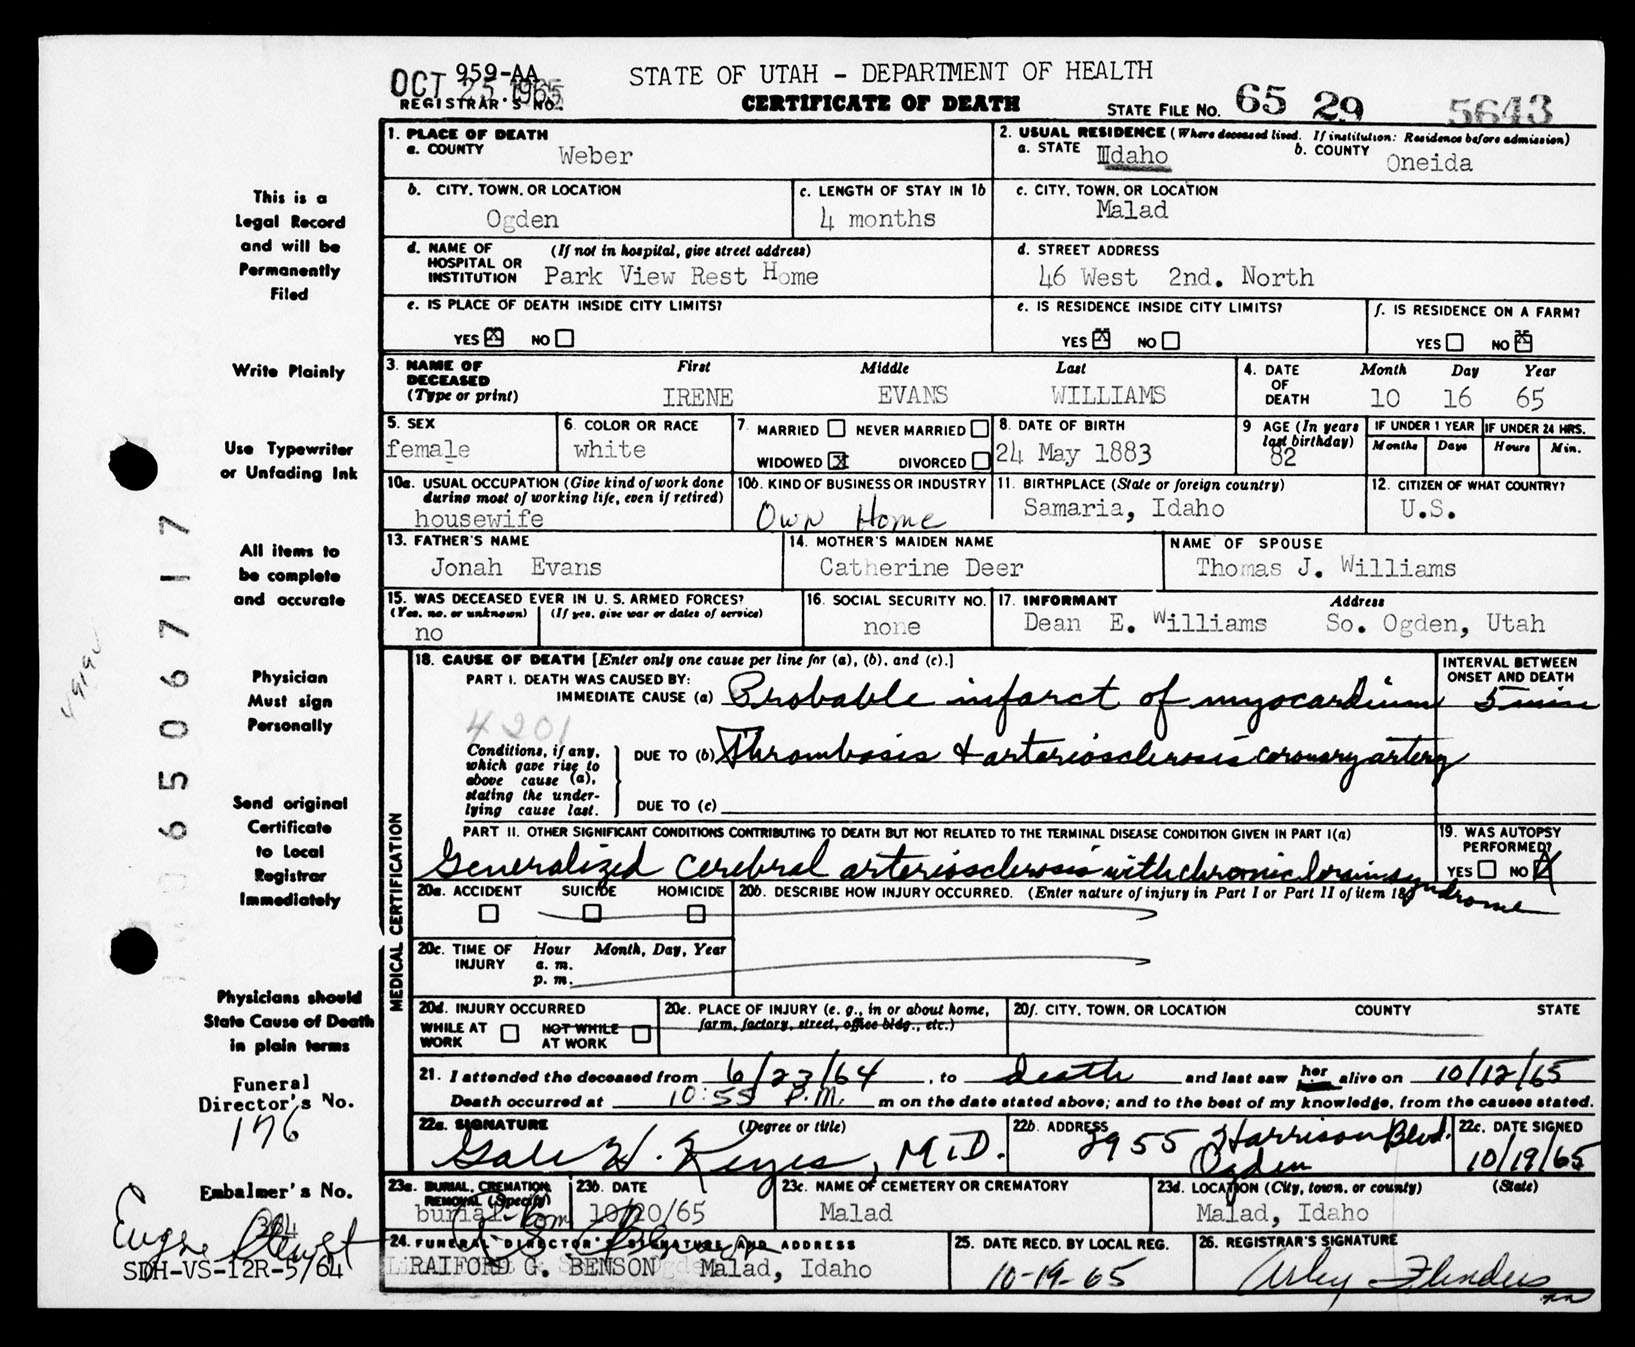 OCT 25 1965
959-AA
REGISTRAR'S NO.
STATE OF UTAH - DEPARTMENT OF HEALTH
CERTIFICATE OF DEATH
STATE FILE NO. 65 29 5643
1. PLACE OF DEATH
a. COUNTY Weber
2. USUAL RESIDENCE (Where deceased lived. If institution: Residence before admission)
a. STATE Idaho b. COUNTY Oneida
b. CITY, TOWN, OR LOCATION Ogden
c. LENGTH OF STAY IN 1b 4 months
c. CITY, TOWN, OR LOCATION Malad
d. NAME OF HOSPITAL OR INSTITUTION (If not in hospital, give street address) Park View Rest Home
d. STREET ADDRESS 46 West 2nd. North
e. IS PLACE OF DEATH INSIDE CITY LIMITS? YES X NO
e. IS RESIDENCE INSIDE CITY LIMITS? YES X NO
f. IS RESIDENCE ON A FARM? YES NO X
3. NAME OF DECEASED (Type or print) First IRENE Middle EVANS Last WILLIAMS
4. DATE OF DEATH Month 10 Day 16 Year 65
5. SEX female
6. COLOR OR RACE white
7. MARRIED NEVER MARRIED WIDOWED X DIVORCED
8. DATE OF BIRTH 24 May 1883
9 AGE (In years last birthday) 82
IF UNDER 1 YEAR Months Days
IF UNDER 24 HRS. Hours Min.
10a. USUAL OCCUPATION (Give kind of work done during most of working life, even if retired) housewife
10b. KIND OF BUSINESS OR INDUSTRY Own Home
11. BIRTHPLACE (State or foreign country) Samaria, Idaho
12. CITIZEN OF WHAT COUNTRY? U.S.
13. FATHER'S NAME Jonah Evans
14. MOTHER'S MAIDEN NAME Catherine Deer
NAME OF SPOUSE Thomas J. Williams
15. WAS DECEASED EVER IN U.S. ARMED FORCES? (Yes, no, or unknown) no (If yes, give war or dates of service)
16. SOCIAL SECURITY NO. none
17. INFORMANT Dean E. Williams Address So. Ogden, Utah
MEDICAL CERTIFICATION
18. CAUSE OF DEATH [Enter only one cause per line for (a), (b), and (c).]
INTERVAL BETWEEN ONSET AND DEATH
PART I. DEATH WAS CAUSED BY:
IMMEDIATE CAUSE (a) Probable infarct of myocardium 5 min
4201
Conditions, if any, which gave rise to above cause (a), stating the underlying cause last.
DUE TO (b) Thrombosis & arteriosclerosis coronary artery
DUE TO (c)
PART II. OTHER SIGNIFICANT CONDITIONS CONTRIBUTING TO DEATH BUT NOT RELATED TO THE TERMINAL DISEASE CONDITION GIVEN IN PART I(a)
Generalized cerebral arteriosclerosis with chronic brain syndrome
19. WAS AUTOPSY PERFORMED? YES NO X
20a. ACCIDENT SUICIDE HOMICIDE
20b. DESCRIBE HOW INJURY OCCURRED. (Enter nature of injury in Part I or Part II of item 18)
20c. TIME OF INJURY Hour a.m. p.m. Month, Day, Year
20d. INJURY OCCURRED WHILE AT WORK NOT WHILE AT WORK
20e. PLACE OF INJURY (e. g., in or about home, farm, factory, street, office bldg., etc.)
20f. CITY, TOWN, OR LOCATION COUNTY STATE
21. I attended the deceased from 6/23/64, to Death and last saw her alive on 10/12/65
Death occurred at 10:55 P.M. m on the date stated above; and to the best of my knowledge, from the causes stated.
22a. SIGNATURE (Degree or title) Gale H. Keyes, M.D.
22b. ADDRESS 2955 Harrison Blvd. Ogden
22c. DATE SIGNED 10/19/65
23a. BURIAL, CREMATION, REMOVAL (Specify) burial
23b. DATE 10/20/65
23c. NAME OF CEMETERY OR CREMATORY Malad
23d. LOCATION (City, town, or county) (State) Malad, Idaho
24. FUNERAL DIRECTOR'S SIGNATURE AND ADDRESS
RAIFORD G. BENSON Malad, Idaho
25. DATE RECD. BY LOCAL REG. 10-19-65
26. REGISTRAR'S SIGNATURE Arley Flinders
This is a
Legal Record
and will be
Permanently
Filed
Write Plainly
Use Typewriter
or Unfading Ink
All items to
be complete
and accurate
Physician
Must sign
Personally
Send original
Certificate
to Local
Registrar
Immediately
Physicians should
State Cause of Death
in plain terms
Funeral
Director's No.
176
Embalmer's No.
364
SDH-VS-12R-5/64
06506717